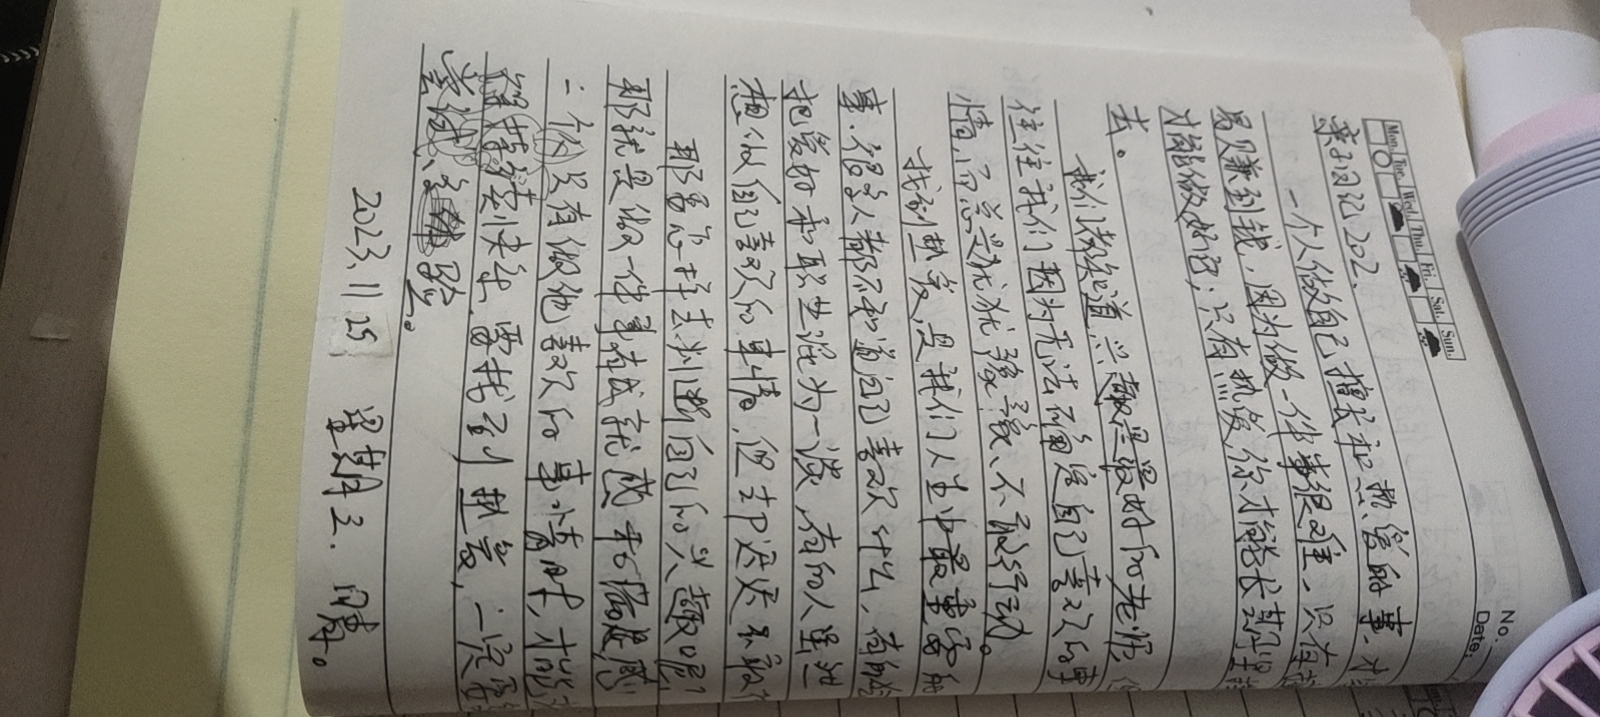 No.
Date:
Mon. Tue. Wed. Thu. Fri. Sat. Sun.
亲子日记202.
一个人做自己擅长和热爱的事.才
易贝兼到钱,因为做一件事很难.只有热
才能做好它;只有热爱你才能长期坚持
去。
我们都知道兴趣是最好的老师,
往往我们因为无法确定自己喜欢的事
情,而总是犹犹豫豫、不敢行动。
找到热爱,是我们人生中最重要的
事.很多人都不知道自己喜欢什么,有的
把爱好和职业混为一谈,有的人虽然
想做自己喜欢的事情,但却迟迟不敢
那么怎样去判断自己的兴趣呢?
那就是做一件事有成就感和满足感
二做只有做他喜欢的事情时,才能
得到快乐.要找到热爱,一定要
尝试、体验。
2023.11 29 星期三.晴。